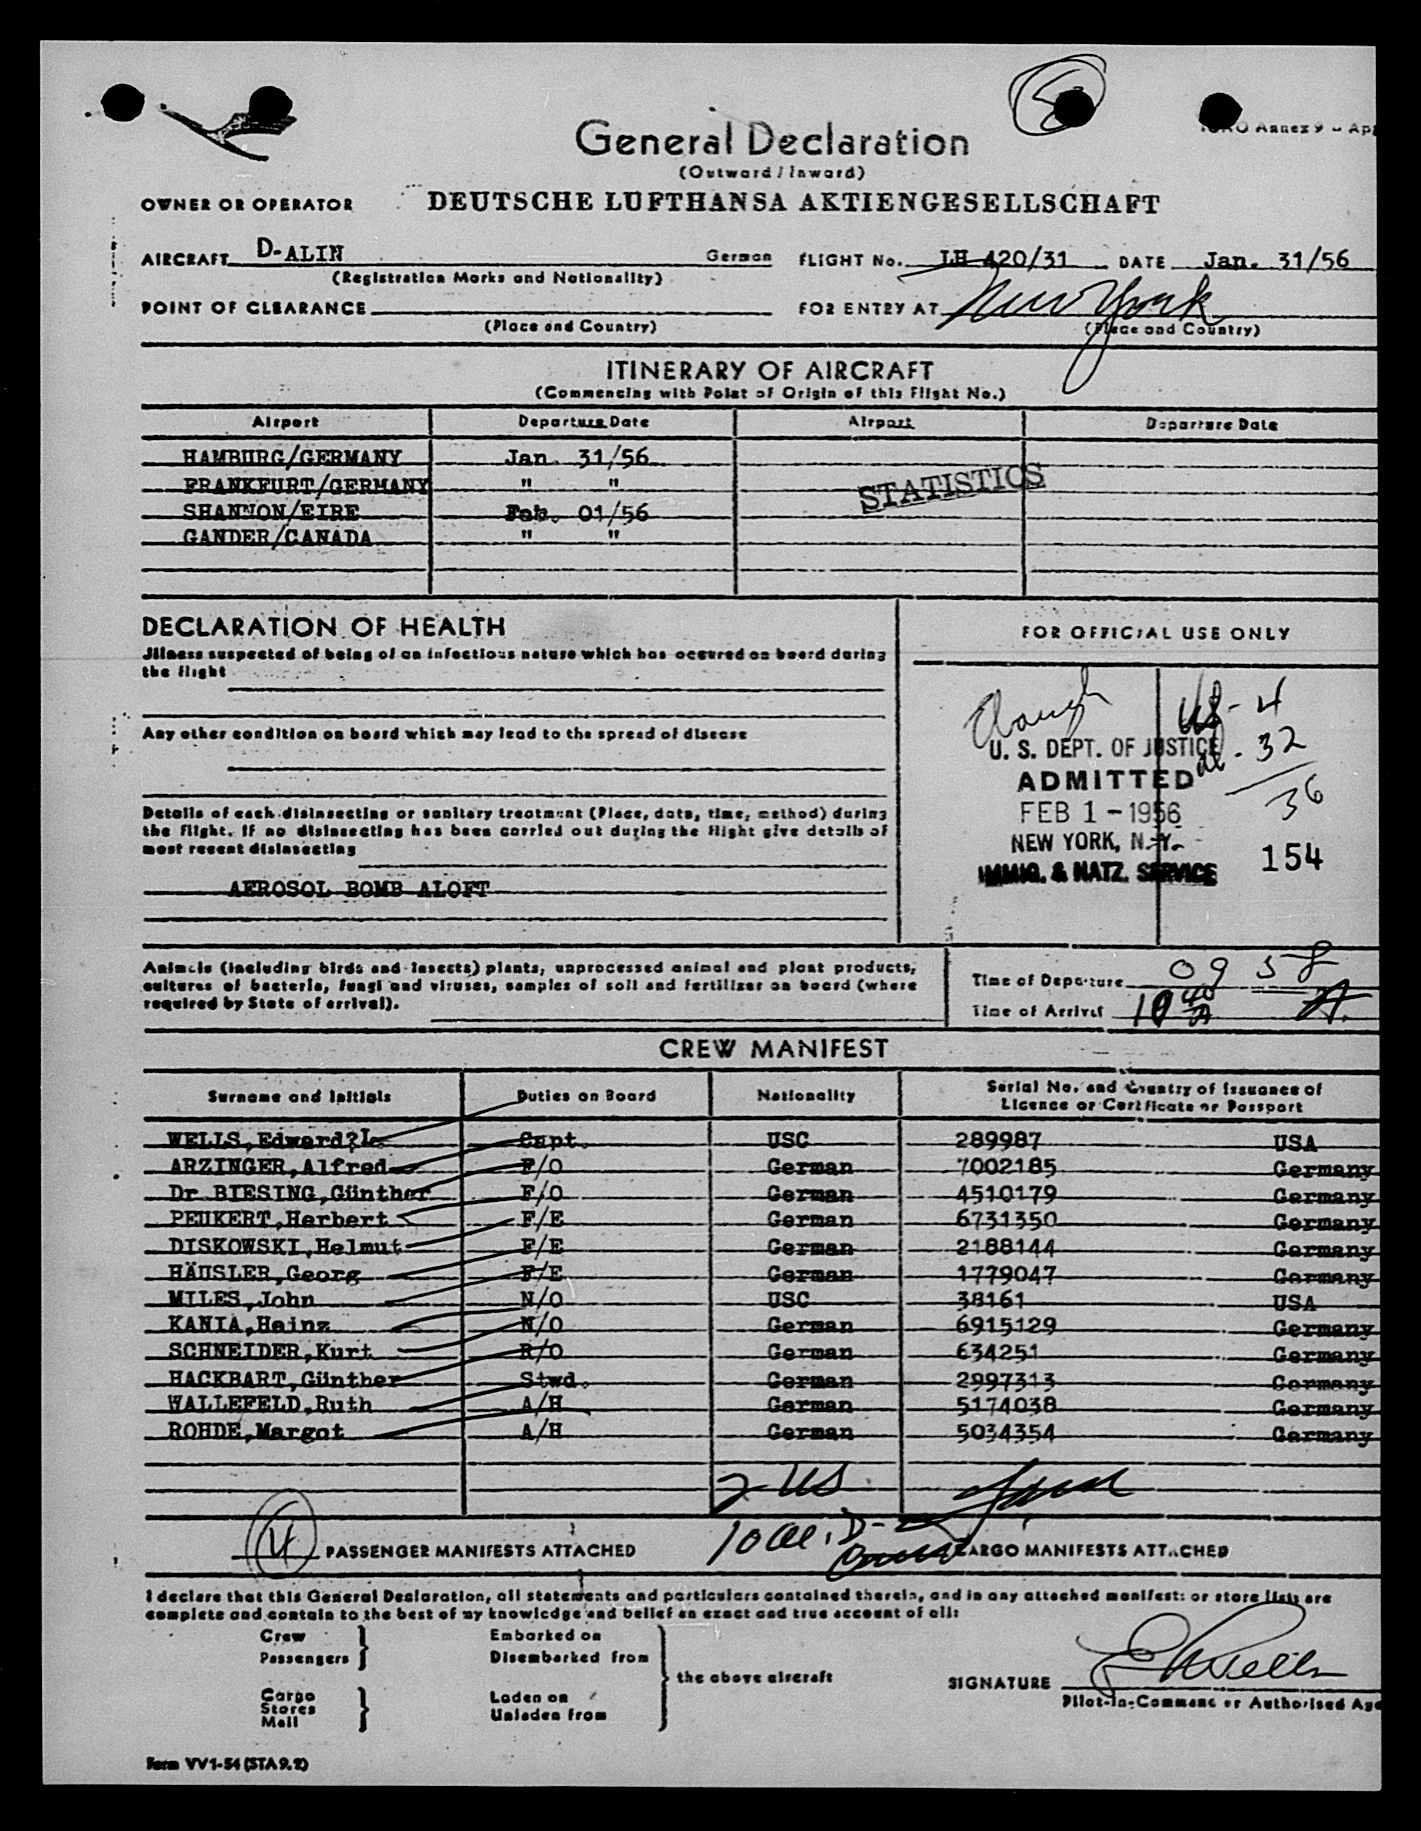 General Declaration
(Outward / Inward)
OWNER OR OPERATOR DEUTSCHE LUFTHANSA AKTIENGESELLSCHAFT
AIRCRAFT D-ALIN German FLIGHT No. LH 420/31 DATE Jan. 31/56
(Registration Marks and Nationality)
POINT OF CLEARANCE FOR ENTRY AT New York
(Place and Country) (Place and Country)
ITINERARY OF AIRCRAFT
(Commencing with Point of Origin of this Flight No.)
Airport Departure Date Airport Departure Date
HAMBURG/GERMANY Jan. 31/56
FRANKFURT/GERMANY " "
STATISTICS
SHANNON/EIRE Feb. 01/56
GANDER/CANADA " "
DECLARATION OF HEALTH
Illness suspected of being of an infectious nature which has occured on board during
the flight
Any other condition on board which may lead to the spread of disease
Details of each disinsecting or sanitary treatment (Place, date, time, method) during
the flight. If no disinsecting has been carried out during the flight give details of
most recent disinsecting
AEROSOL BOMB ALOFT
FOR OFFICIAL USE ONLY
US - 4
al - 32
36
U. S. DEPT. OF JUSTICE
ADMITTED
FEB 1 - 1956
NEW YORK, N.Y.
IMMIG. & NATZ. SERVICE
154
Animals (including birds and insects) plants, unprocessed animal and plant products,
cultures of bacteria, fungi and viruses, samples of soil and fertilizer on board (where
required by State of arrival).
Time of Departure 09 58
Time of Arrival 10 40 A A.
CREW MANIFEST
Surname and Initials Duties on Board Nationality Serial No. and Country of Issuance of
Licence or Certificate or Passport
WELLS,Edward?L. Capt. USC 289987 USA
ARZINGER,Alfred F/O German 7002185 Germany
Dr BIESING,Günther F/O German 4510179 Germany
PEUKERT,Herbert F/E German 6731350 Germany
DISKOWSKI,Helmut F/E German 2188144 Germany
HÄUSLER,Georg F/E German 1779047 Germany
MILES,John N/O USC 38161 USA
KANIA,Heinz N/O German 6915129 Germany
SCHNEIDER,Kurt R/O German 634251 Germany
HACKBART,Günther Stwd. German 2997313 Germany
WALLEFELD,Ruth A/H German 5174038 Germany
ROHDE,Margot A/H German 5034354 Germany
2 US
10 al. D-
4 PASSENGER MANIFESTS ATTACHED CARGO MANIFESTS ATTACHED
I declare that this General Declaration, all statements and particulars contained therein, and in any attached manifest: or store lists are
complete and contain to the best of my knowledge and belief an exact and true account of all:
Crew Embarked on
Passengers Disembarked from
the above aircraft
Cargo Laden on
Stores Unladen from
Mail
SIGNATURE E L Wells
Pilot-in-Command or Authorised Age
Form VV1-54 (STA9.2)